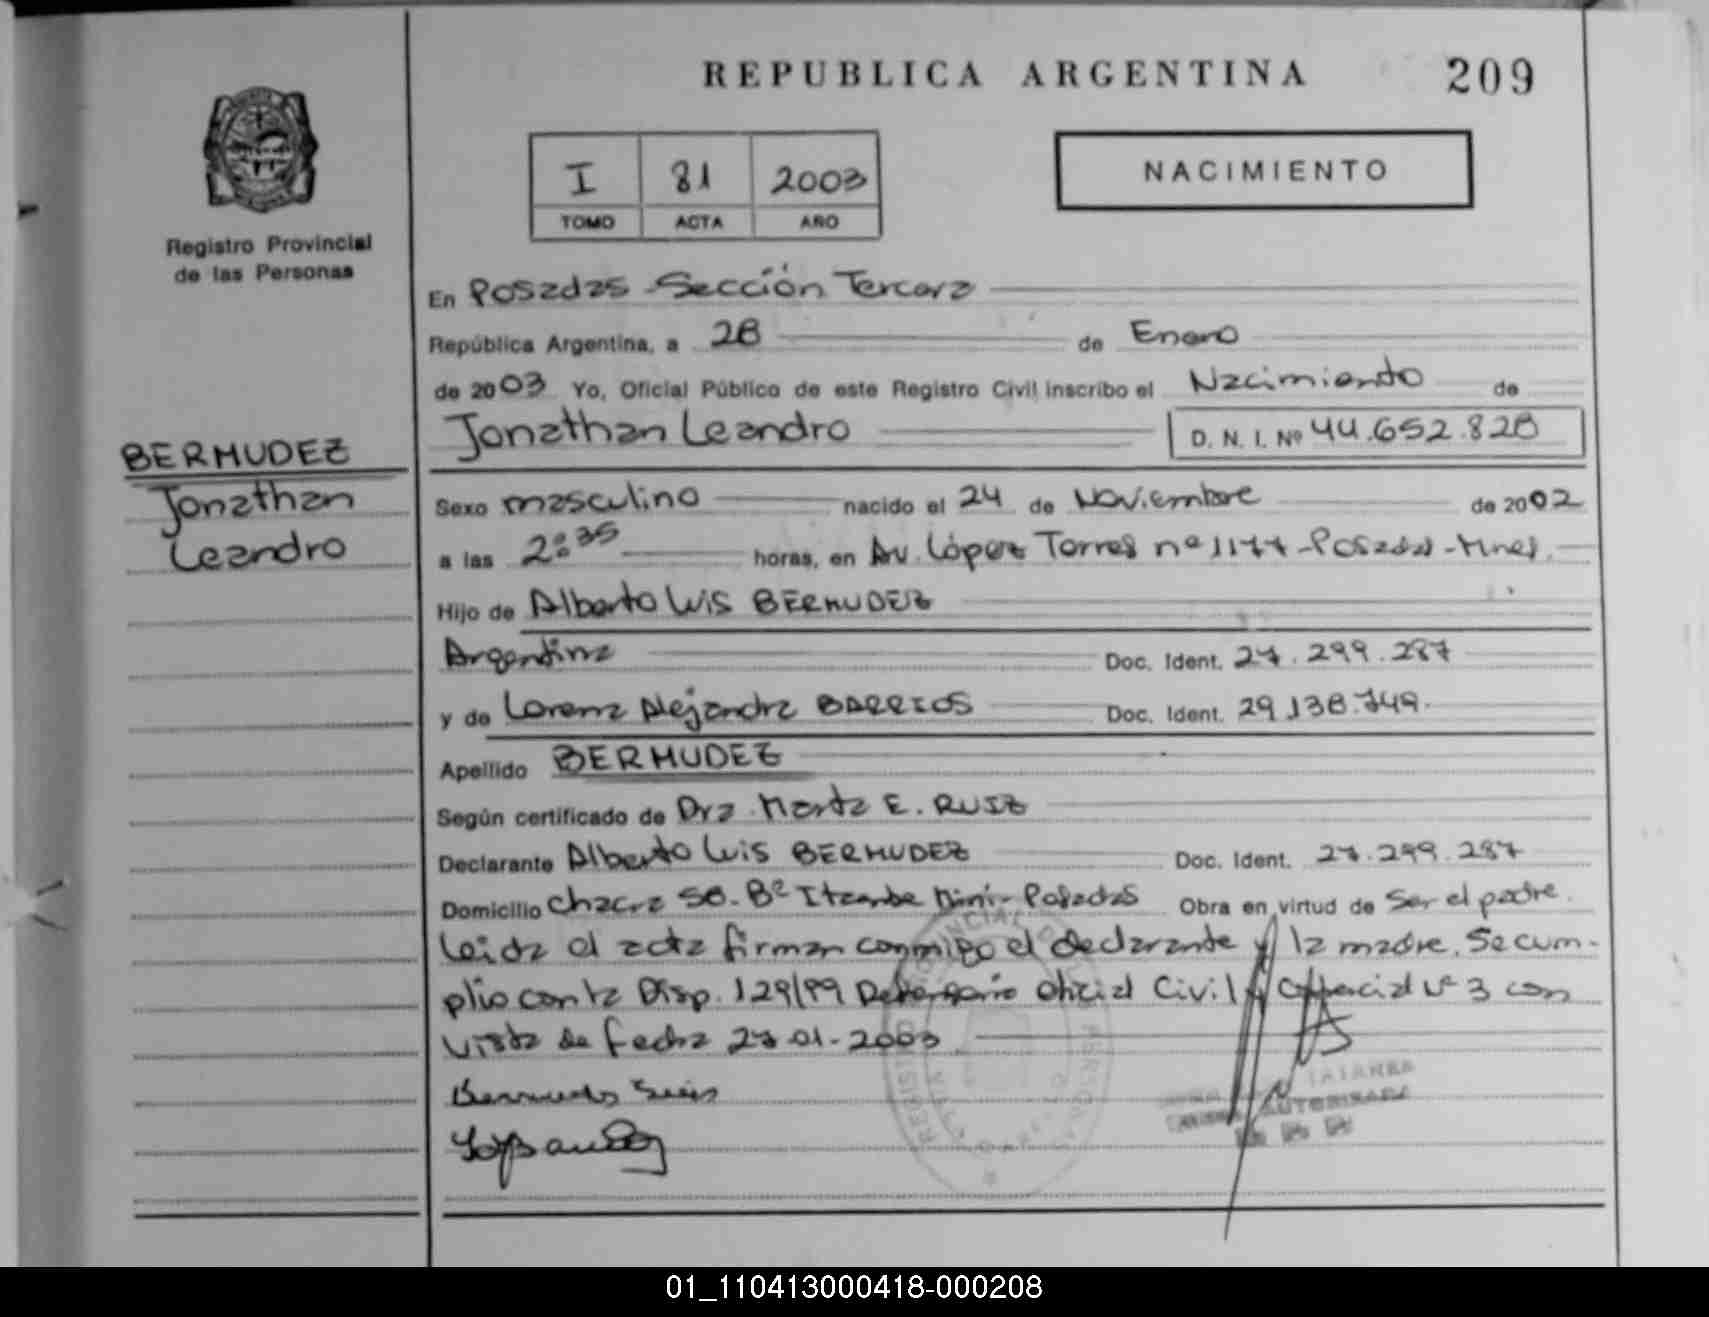 REPUBLICA ARGENTINA 209
I 81 2003
TOMO ACTA AÑO
NACIMIENTO
Registro Provincial
de las Personas
BERMUDEZ
Jonathan
Leandro
En Posadas Sección Tercera
República Argentina, a 28 de Enero
de 2003 Yo, Oficial Público de este Registro Civil inscribo el Nacimiento de
Jonathan Leandro D. N. I. Nº 44.652.828
Sexo masculino nacido el 24 de Noviembre de 2002
a las 2:35 horas, en Av. López Torres nº 1177-Posadas-Mnes.
Hijo de Alberto Luis BERMUDEZ
Argentina Doc. Ident. 27.299.287
y de Lorena Alejandra BARRIOS Doc. Ident. 29.138.749.
Apellido BERMUDEZ
Según certificado de Dra. Marta E. RUIZ
Declarante Alberto Luis BERMUDEZ Doc. Ident. 27.299.287
Domicilio Chacra 50. Bº Itaembe Miní- Posadas Obra en virtud de Ser el padre.
Leida el acta firman conmigo el declarante y la madre. Se cum-
plio con la Disp. 129/99 Oficial Civil y nº 3 con
vista de fecha 27-01-2003
AUTORIZADA
01_110413000418-000208